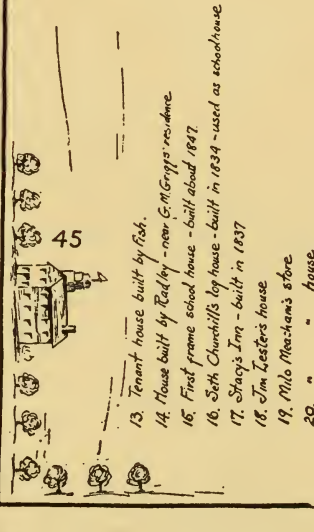 45
13. Tenant house built by Fish.
14. House built by Radley - near G.M. Griggs' residence
15. First frame school house - built about 1847.
16. Seth Churchill's log house - built in 1834 - used as schoolhouse
17. Stacy's Inn - built in 1837
18. Jim Lester's house
19. Milo Meacham's store
20. " " house